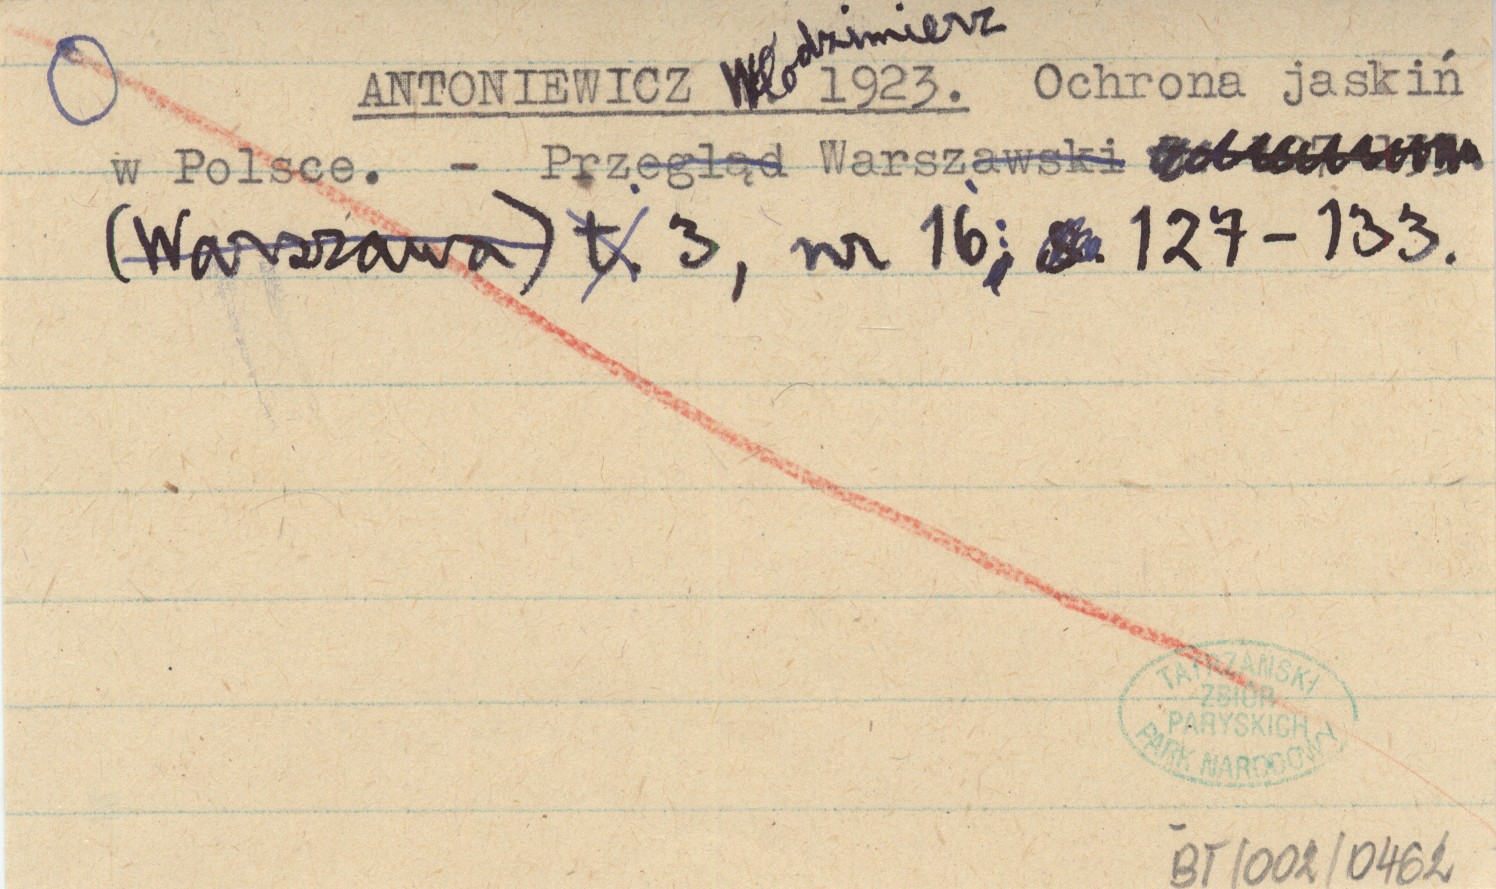 ANTONIEWICZ Włodzimierz 1923. Ochrona jaskiń
w Polsce. - Przegląd Warszawski
(Warszawa) t. 3, nr 16; 127-133.
TATRZAŃSKI
ZBIÓR
PARYSKICH
PARK NARODOWY
BT/002/0462